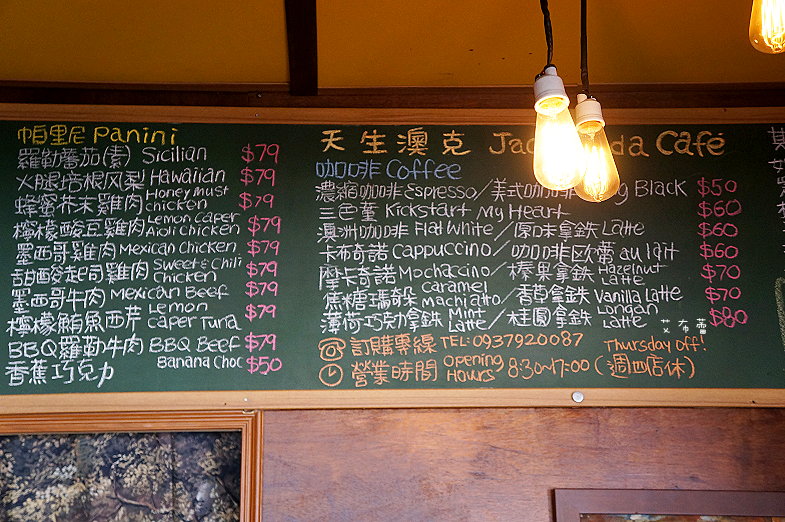 帕里尼 Panini
羅勒蕃茄(素) Sicilian $79
火腿培根风梨 Hawaiian $79
蜂蜜芥末雞肉 Honey Must chicken $79
檸檬酸豆雞肉 Lemon caper Aioli chicken $79
墨西哥雞肉 Mexican Chicken $79
甜酸起司雞肉 Sweet & Chili Chicken $79
墨西哥牛肉 Mexican Beef $79
檸檬鮪魚西芹 Lemon caper Tuna
BBQ羅勒牛肉 BBQ Beef $79
香蕉巧克力 Banana Choc $50
天生澳克 Jac da Café
咖啡 Coffee
濃縮咖啡 Espresso/美式咖啡 g Black $50
三色董 Kickstart My Heart $60
澳洲咖啡 Flat White/原味拿鉄 Latte $60
卡布奇諾 Cappuccino/咖啡欧蕾 au lait $60
摩卡奇諾 Mochaccino/榛果拿鉄 Hazelnut Latte $70
焦糖瑪奇朵 Caramel Machiatto/香草拿鉄 Vanilla Latte $70
薄荷巧克力拿鉄 Mint Latte/桂圓拿鉄 Longan Latte $80
訂購專線 TEL:0937920087 Thursday Off!
營業時間 Opening Hours 8:30~17:00 (週四店休)